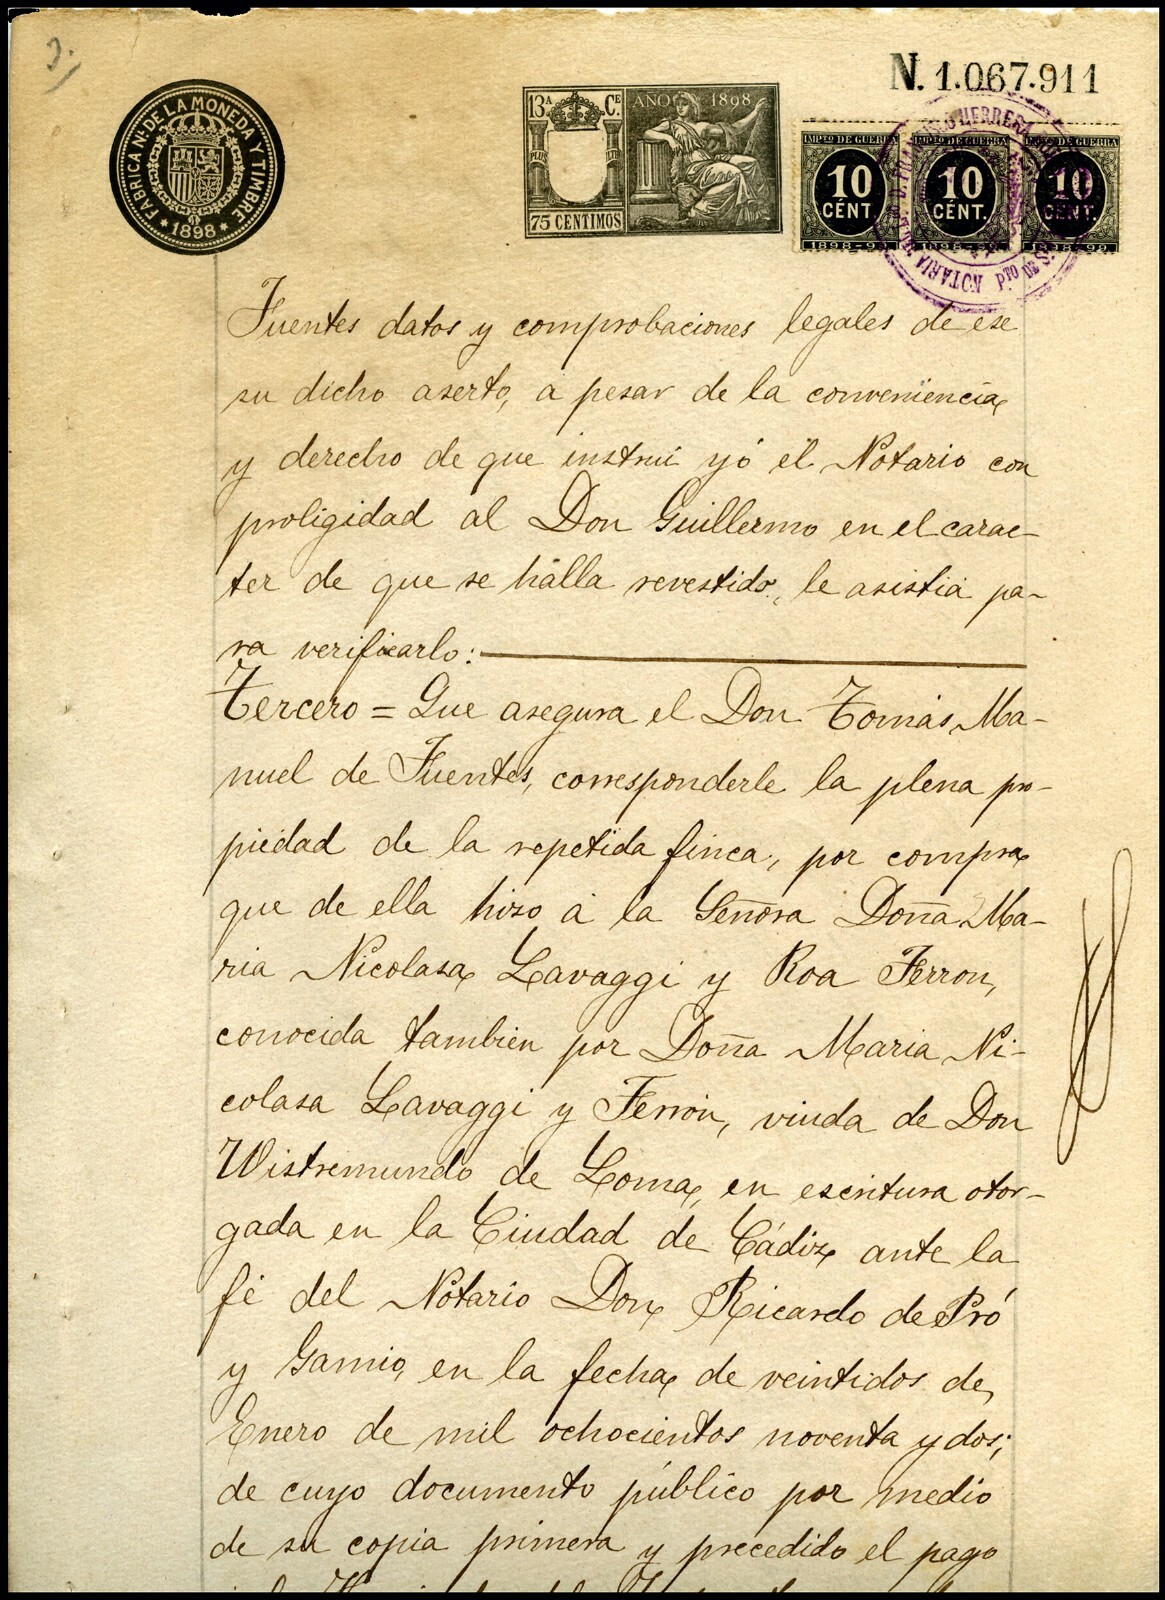 FABRICA Nˡ DE LA MONEDA Y TIMBRE
1898
13ª Cᴱ
PLUS
AÑO 1898
75 CENTIMOS
N. 1.067.911
IMPTO DE GUERRA IMPTO DE GUERRA IMPTO DE GUERRA
10 10 10
CÉNT. CÉNT. CÉNT.
1898-99 1898-99 1898-99
HERRERA
NOTARIA Pᵀᴼ DE
Fuentes datos y comprobaciones legales de ese
su dicho aserto, á pesar de la conveniencia
y derecho de que instruí yó él Notario con
proligidad al Don Guillermo en el carac-
ter de que se hálla revestido, le asistia pa-
ra verificarlo:
Tercero = Que asegura el Don Tomás Ma-
nuel de Fuentes, corresponderle la plena pro-
piedad de la repetida finca, por compra
que de ella hizo á la Señora Doña Ma-
ria Nicolasa Lavaggi y Roa Ferron,
conocida tambien por Doña Maria Ni-
colasa Lavaggi y Ferrón, viuda de Don
Wistremundo de Loma, en escritura otor-
gada en la Ciudad de Cádiz ante la
fé del Notario Don Ricardo de Pró
y Gamio, en la fecha de veintidos de
Enero de mil ochocientos noventa y dos;
de cuyo documento público por medio
de su copia primera y precedido el pago